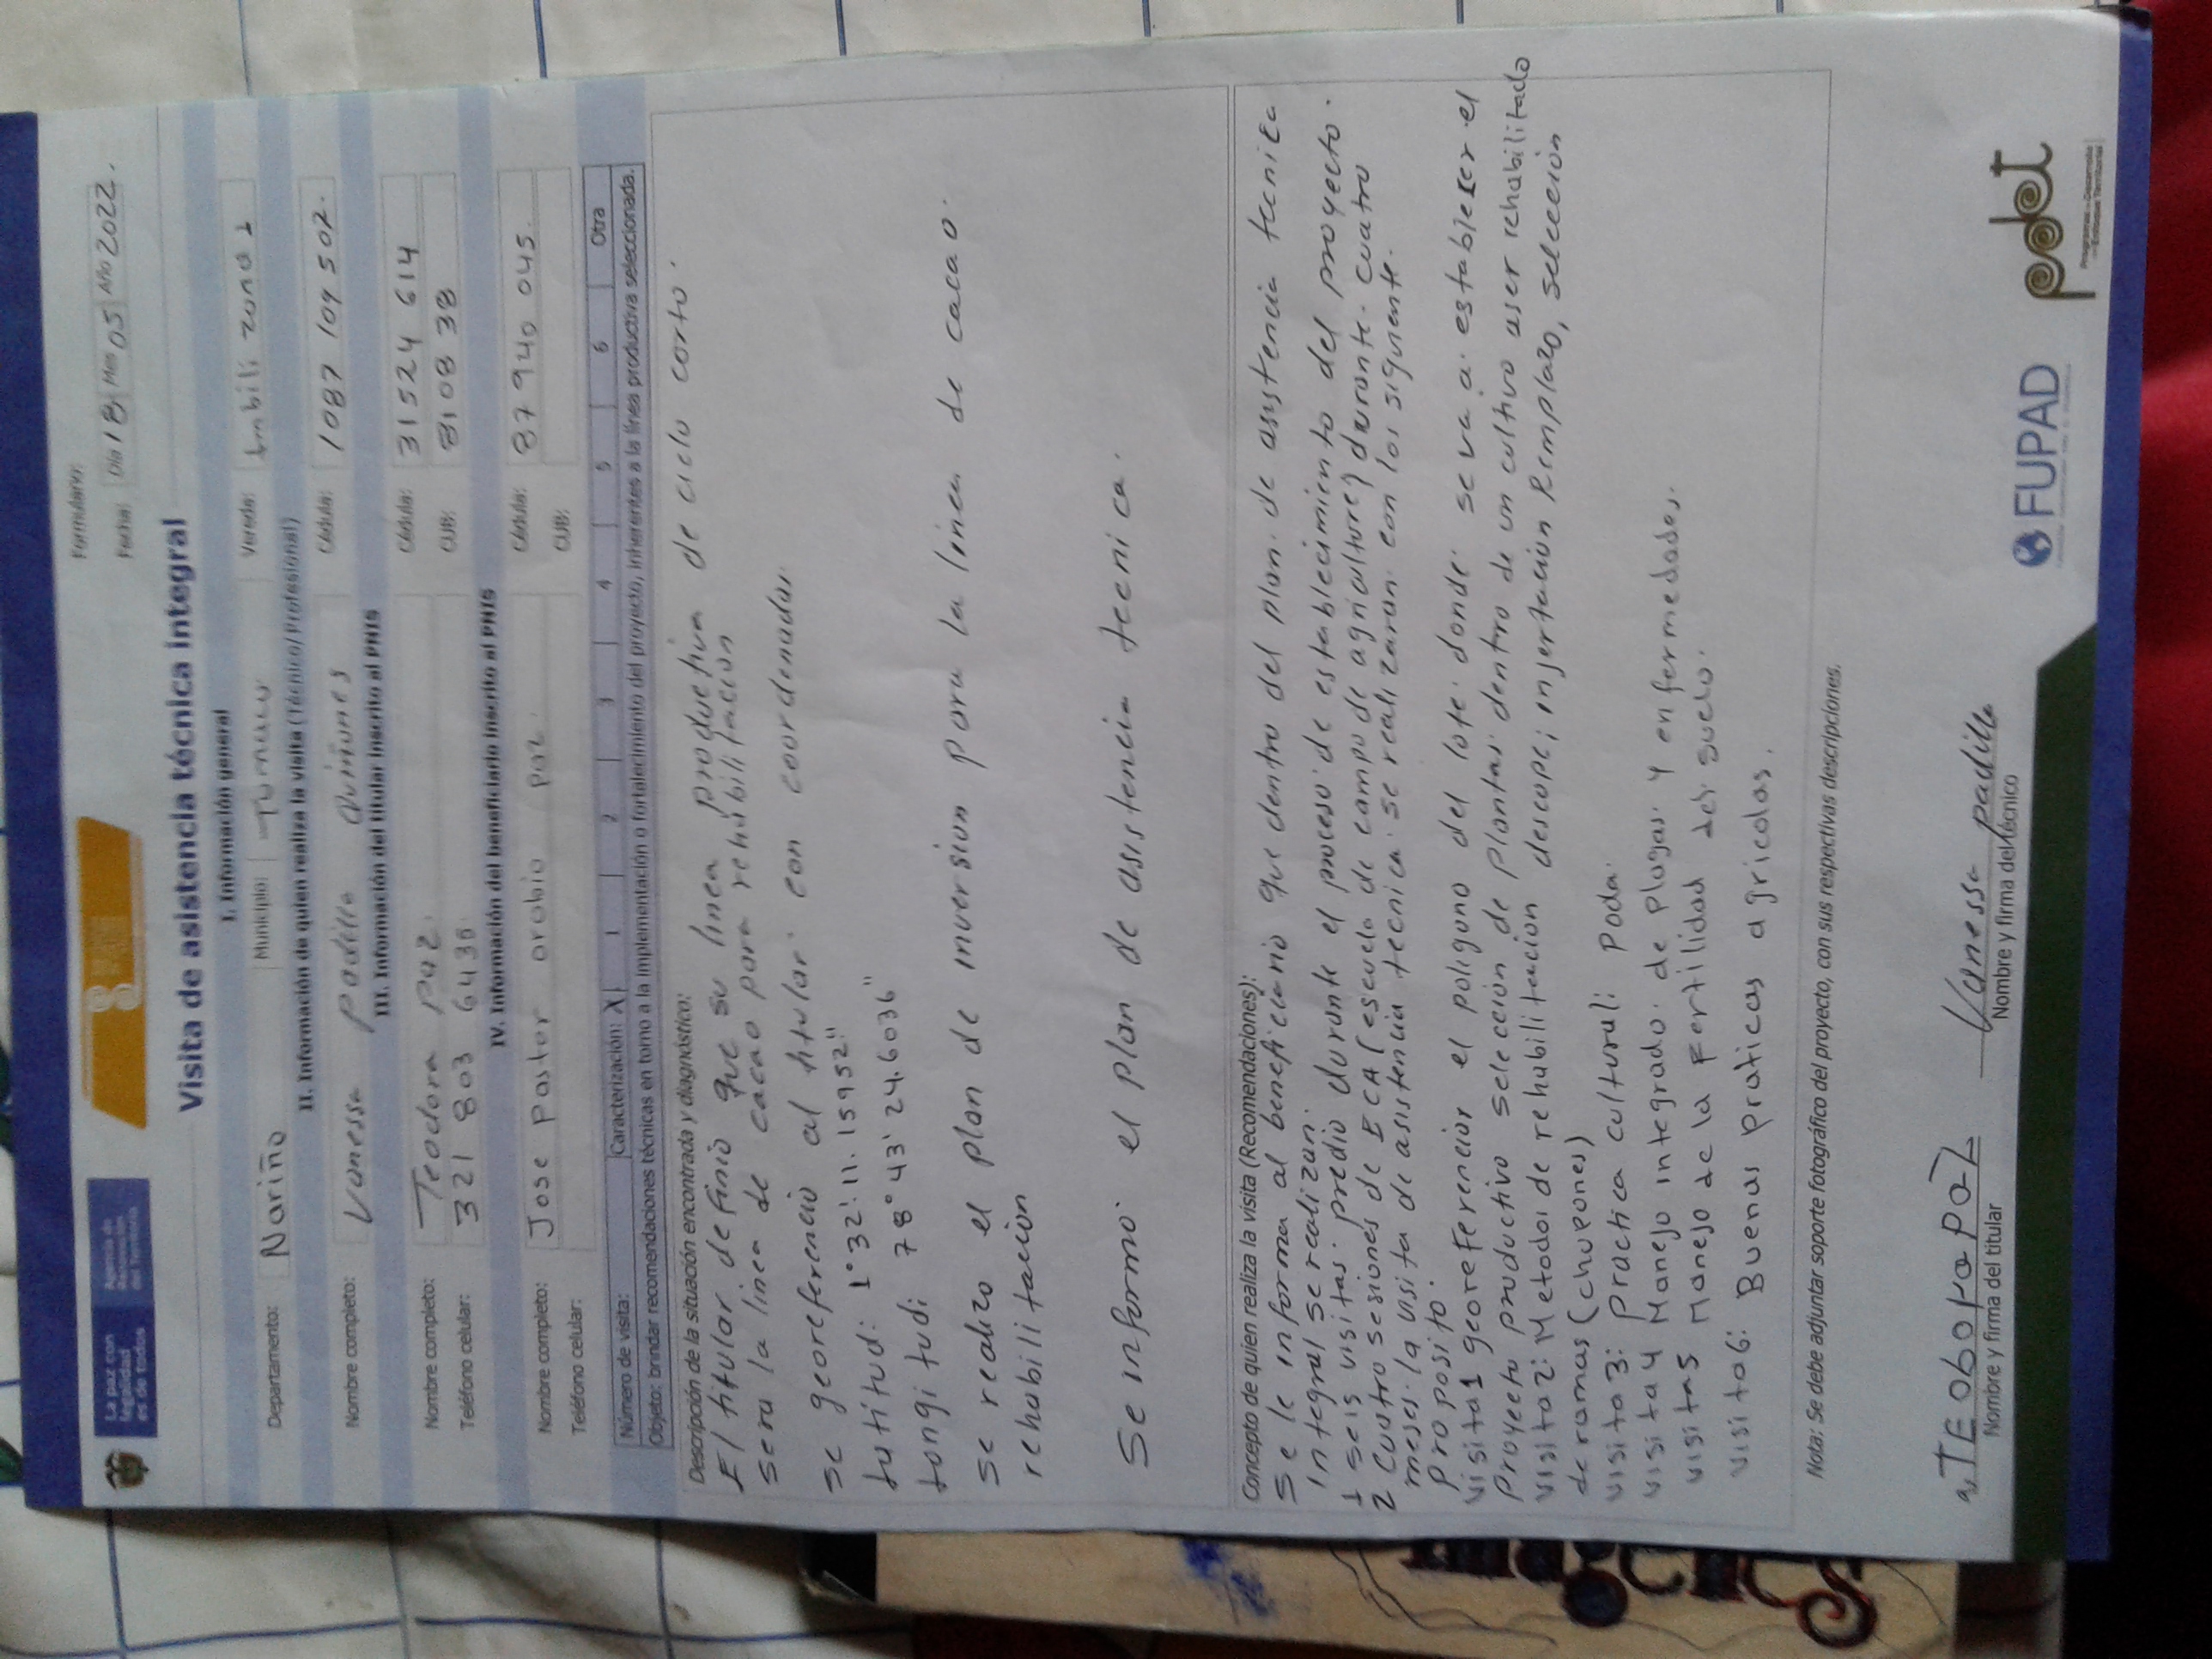 La paz con
legalidad
es de todos
Agencia de
Renovación
del Territorio
Formulario:
Fecha: Día 18 Mes 05 Año 2022.
Visita de asistencia técnica integral
I. Información general
Departamento: Nariño Municipio: Tumaco Vereda: Imbili zona 1
II. Información de quien realiza la visita (Técnico/Profesional)
Nombre completo: Vanessa Padilla Quiñones Cédula: 1087 109 502.
III. Información del titular inscrito al PNIS
Nombre completo: Teodora Paz. Cédula: 31524 614
Teléfono celular: 321 803 6435 CUB: 8108 38
IV. Información del beneficiario inscrito al PNIS
Nombre completo: Jose Pastor orobio paz. Cédula: 87 940 045.
Teléfono celular: CUB:
Número de visita: Caracterización: X 1 2 3 4 5 6 Otra
Objeto: brindar recomendaciones técnicas en torno a la implementación o fortalecimiento del proyecto, inherentes a la línea productiva seleccionada.
Descripción de la situación encontrada y diagnóstico:
El titular definio que su linea productiva de ciclo corto.
sera la linea de cacao para rehabilitacion
se georeferencio al titular. con coordenadas
Latitud: 1° 32' 11.15952"
Longitud: 78° 43' 24.6036"
se realizo el plan de inversion para la linea de cacao.
rehabilitacion
Se informo el plan de asistencia tecnica.
Concepto de quien realiza la visita (Recomendaciones):
Se le informa al beneficiario que dentro del plan de asistencia tecnica
Integral se realizan.
1 seis visitas: predio durante el proceso de establecimiento del proyecto.
2 cuatro sesiones de ECA (escuela de campo de agricultures) durante cuatro
meses. la visita de asistencia tecnica se realizaran con los siguiente.
Proposito.
Visita 1 georeferenciar el poligono del lote donde se va a establecer el
Proyecto productivo seleccion de plantas dentro de un cultivo aser rehabilitado
visita 2: Metodos de rehabilitacion descope; injertacion Remplazo, seleccion
de ramas (chupones)
visita 3: Practica cultural: Poda.
visita 4 Manejo integrado de plagas y enfermedades.
visita 5 Manejo de la Fertilidad del suelo.
visita 6: Buenas praticas agricolas.
Nota: Se debe adjuntar soporte fotográfico del proyecto, con sus respectivas descripciones.
TEodora Paz
Vanessa padilla
Nombre y firma del titular
Nombre y firma del técnico
FUPAD
pdet
Programas de Desarrollo
con Enfoque Territorial